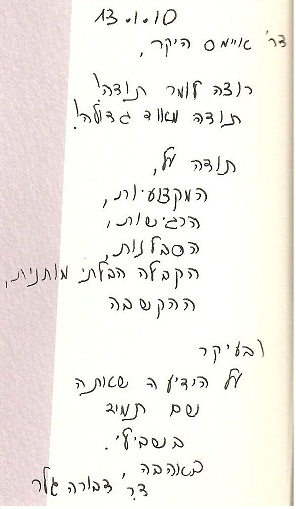 13.1.10
דר' איימס היקר,
רוצה לומר תודה!
תודה מאוד גדולה!
תודה על,
המקצועיות,
הרגישות,
הסבלנות,
הקבלה הבלתי מותנית,
ההקשבה
ובעיקר
על הידיעה שאתה
שם תמיד
בשבילי.
באהבה
דר' דבורה גלר